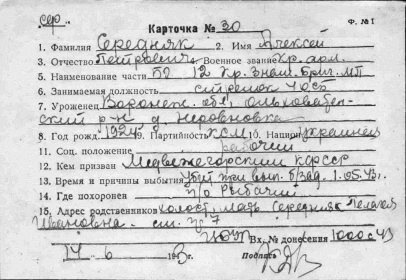 сер
Ф. № 1
Карточка № 30
1. Фамилия Середняк 2. Имя Алексей
3. Отчество Петрович Военное звание кр. арм.
5. Наименование части 12 кр. знам. бриг. МП
6. Занимаемая должность стрелок
7. Уроженец Воронеж. обл.
ский р-н, д. Неровновка
8. Год рожд. 1924 9. Партийность ХСМ 10. Национ. украинец
11. Соц. положение рабочий
12. Кем призван Медвежегорский КФССР
13. Время и причины выбытия убит при вып. б/зад. 1.05.43 г.
14. Где похоронен п/о Рыбачий
15. Адрес родственников холост, мать Середняк Пелагея
Ивановна - см. пр. 7
Вх. № донесения 1000 с 43
14 6 1943 г. Подпись